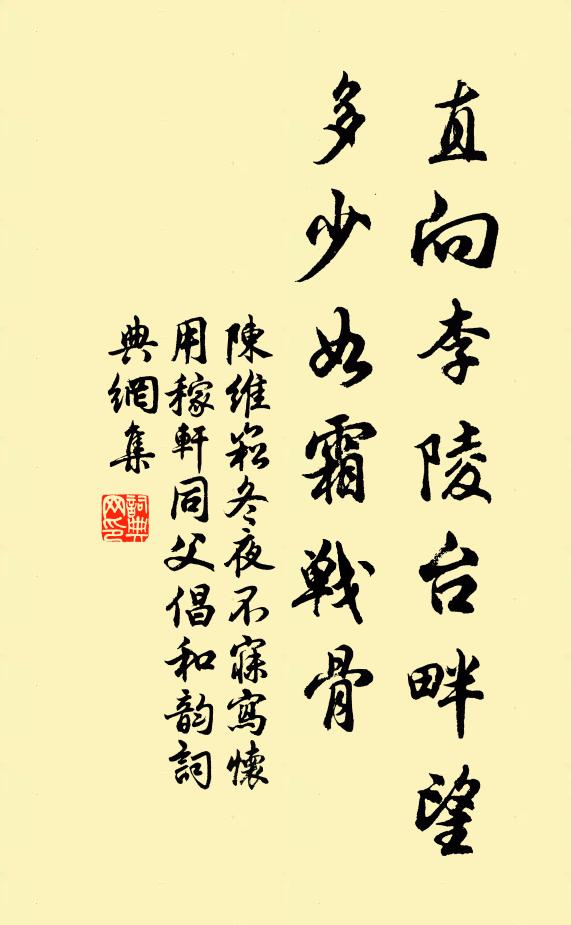 直向李陵台畔望
多少如霜戰骨
陳維崧冬夜不寐寫懷
用稼軒同父倡和韵詞
典網集
詞典網印